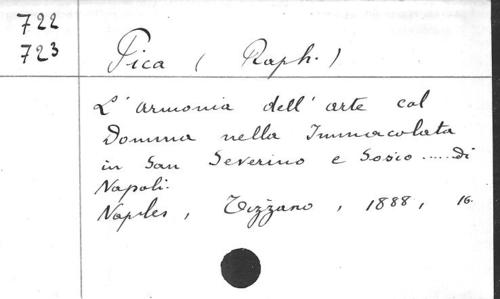 722
723
Pica ( Raph. )
L'armonia dell'arte col
Domma nella Immacolata
in San Severino e Sosio ..... di
Napoli.
Naples, Vizzano, 1888, 16.